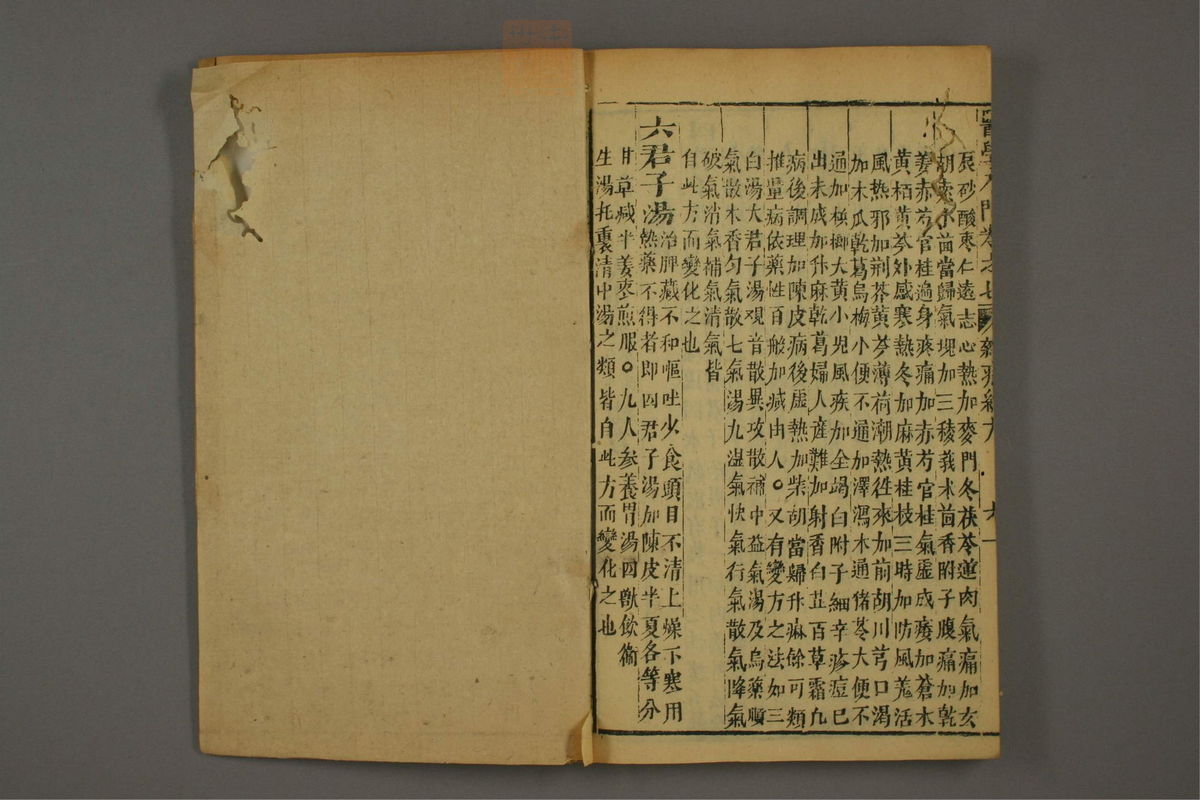 醫學入門卷之七 雜病統方 六一
辰砂酸棗仁遠志心熱加麥門冬茯苓蓮肉氣痛加玄
胡索小茴當歸氣塊加三稜莪朮茴香附子腹痛加乾
姜赤芍官桂遍身疼痛加赤芍官桂氣虛成痿加蒼朮
黃栢黃芩外感寒熱冬加麻黃桂枝三時加防風羗活
風热邪加荆芥黃芩薄荷潮熱徃來加前胡川芎口渴
加木瓜乾葛烏梅小便不通加澤瀉木通猪苓大便不
通加檳榔大黃小児風疾加全竭白附子細辛疹痘已
出未成加升麻乾葛婦人産難加射香白芷百草霜九
病後調理加陳皮病後虛熱加柴胡當歸升麻餘可類
推量病依藥性百般加减由人○又有變方之法如三
白湯大君子湯观音散異攻散補中益氣湯及烏藥順
氣散木香勻氣散七氣湯九温氣快氣行氣散氣降氣
破氣消氣補氣清氣皆
自此方而變化之也
六君子湯治脾藏不和嘔吐少食頭目不清上燥下寒用
熱藥不得者即四君子湯加陳皮半夏各等分
甘草减半姜枣煎服○九人参養胃湯四獸飲衛
生湯托裏清中湯之類皆自此方而變化之也